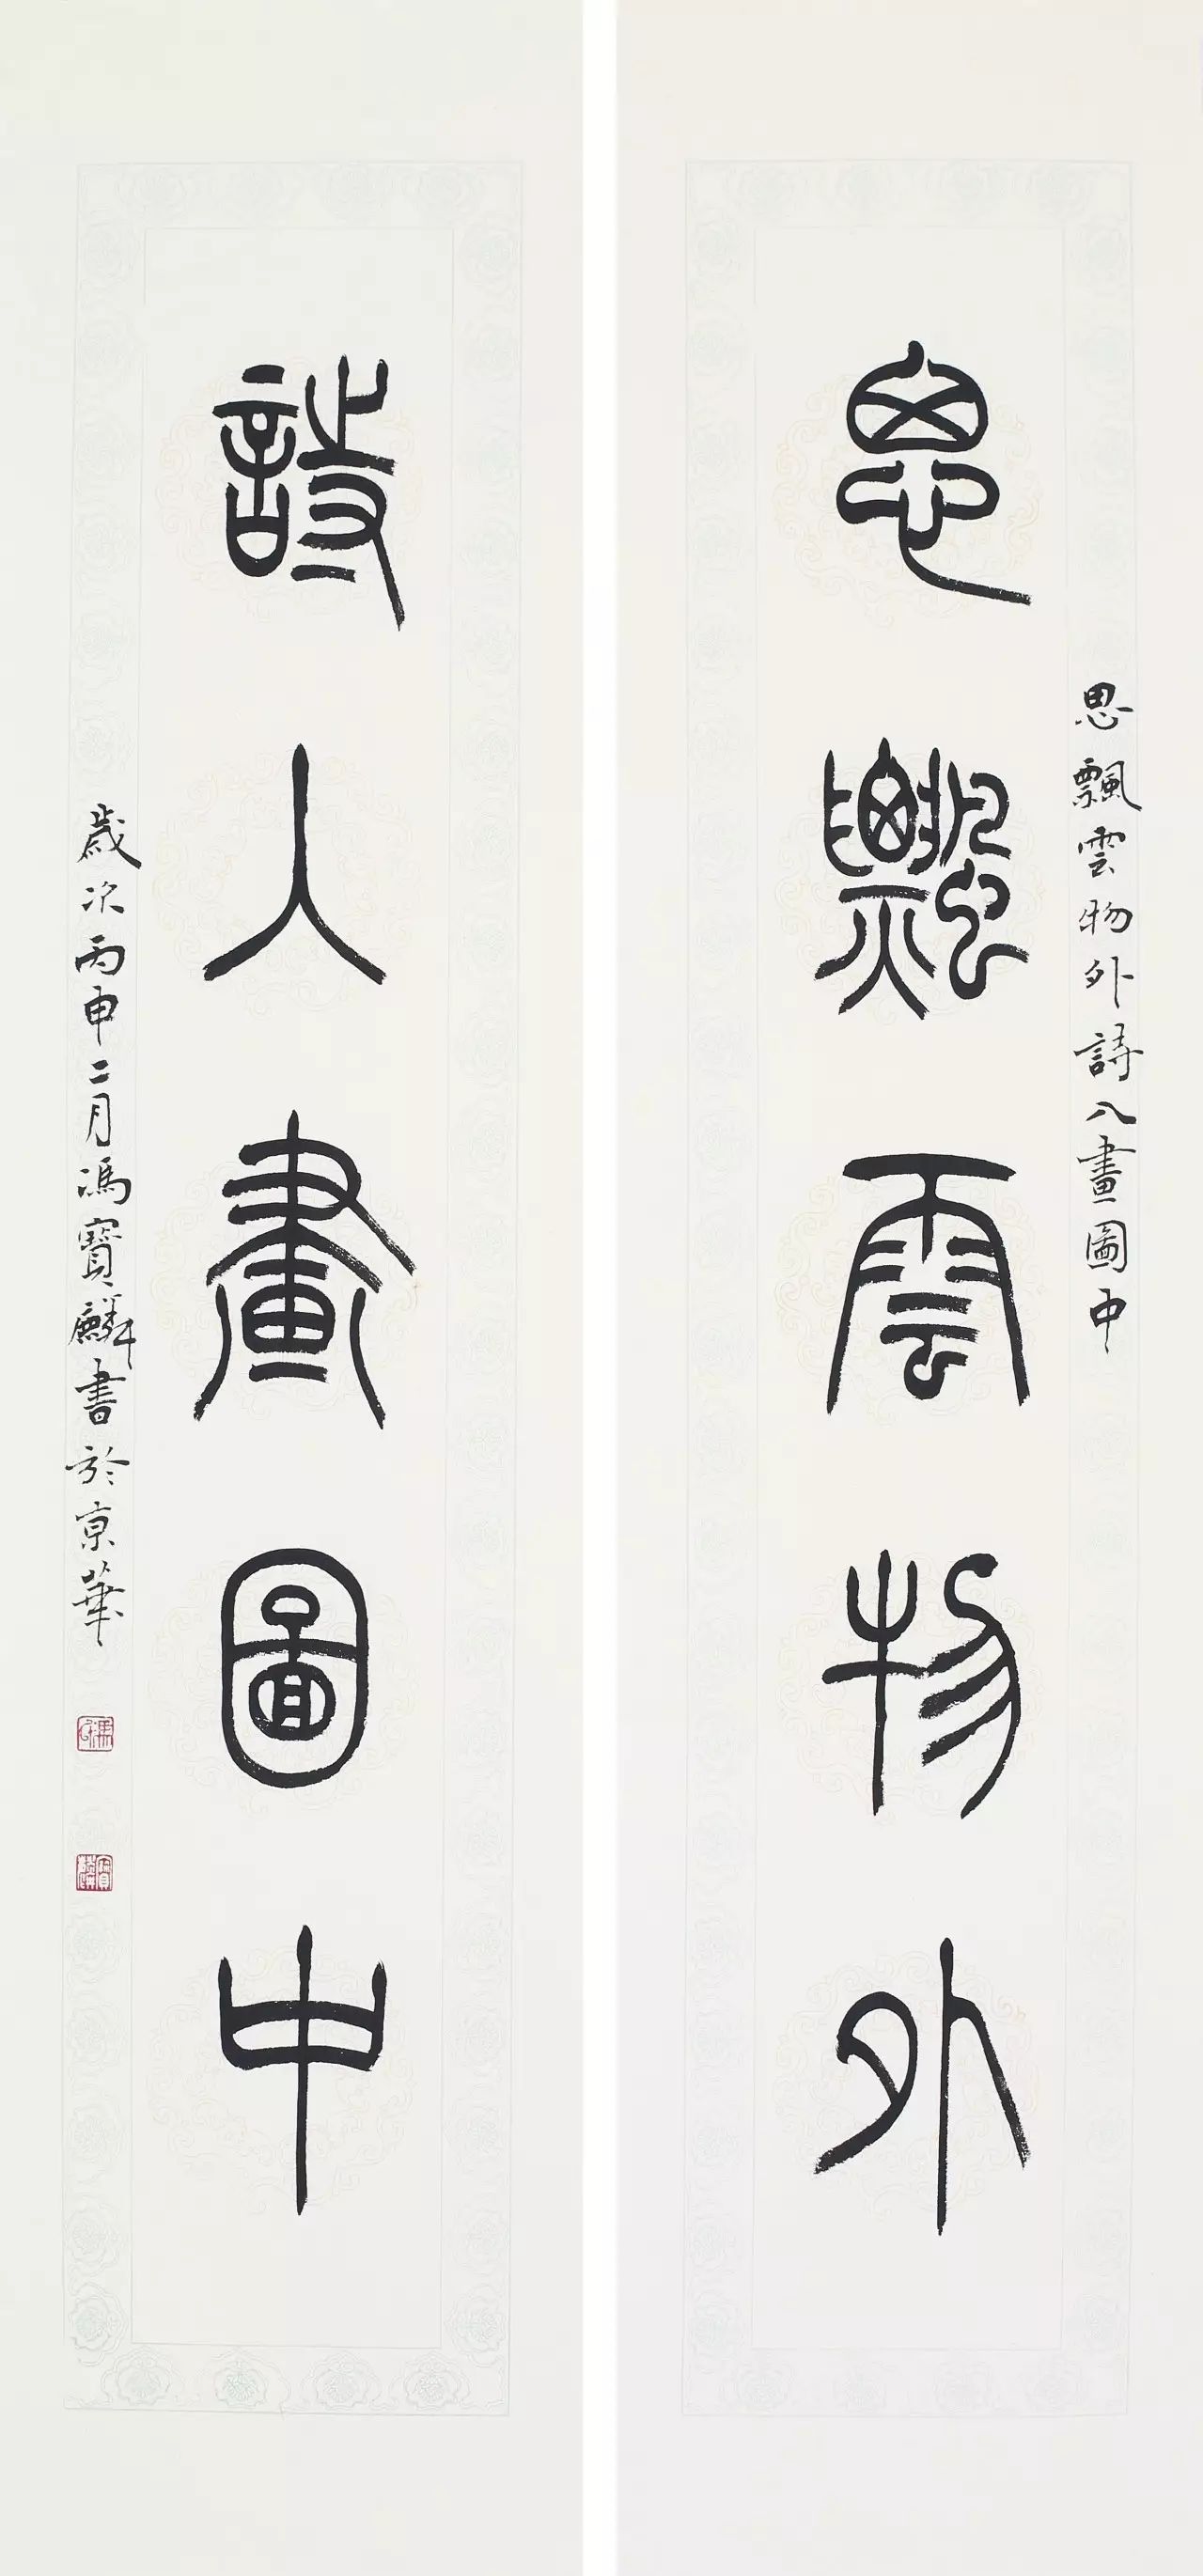 思飄雲物外詩入畫圖中
思飄雲物外
詩入畫圖中
歲次丙申二月馮寶麟書於京華
馮印
寶麟